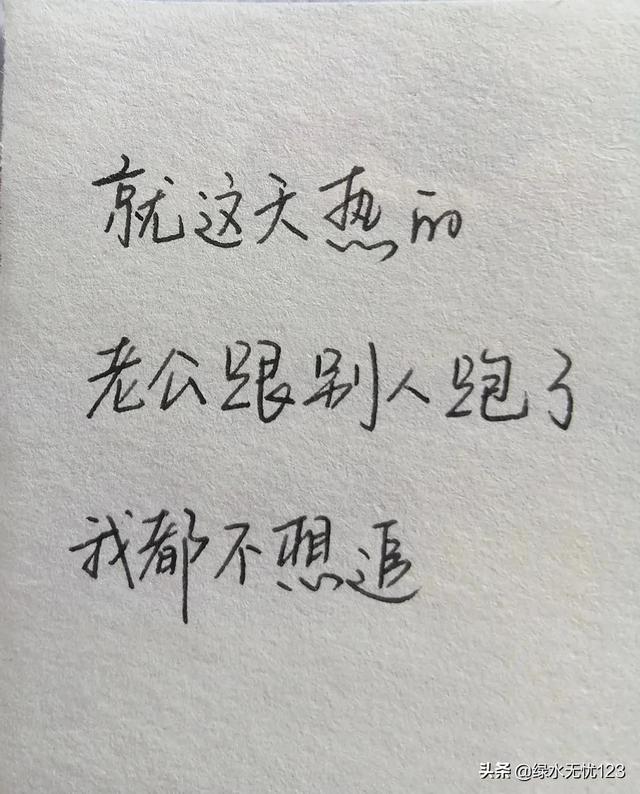 就这天热的
老公跟别人跑了
我都不想追
头条 @绿水无忧123